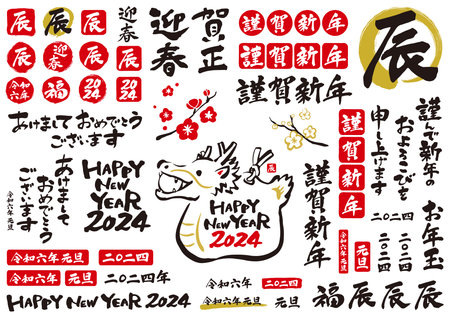 辰
辰
辰
迎春
辰
迎春
辰
辰
令和六年
福
2024
2024
迎春
賀正
謹賀新年
謹賀新年
謹賀新年
辰
あけまして おめでとう
ございます
あけまして
おめでとう
ございます
令和六年 元旦
HAPPY
NEW
YEAR
2024
辰
HAPPY
NEW YEAR
2024
謹賀新年
謹賀新年
謹んで新年の
およろこびを
申し上げます
二〇二四
お年玉
二〇二四
二〇二四
元旦
令和六年 元旦
令和六年 元旦
二〇二四
令和六年 元旦
二〇二四年
二〇二四年
HAPPY NEW YEAR 2024
令和六年
二〇二四
令和六年 元旦
元旦
福
辰
辰
辰